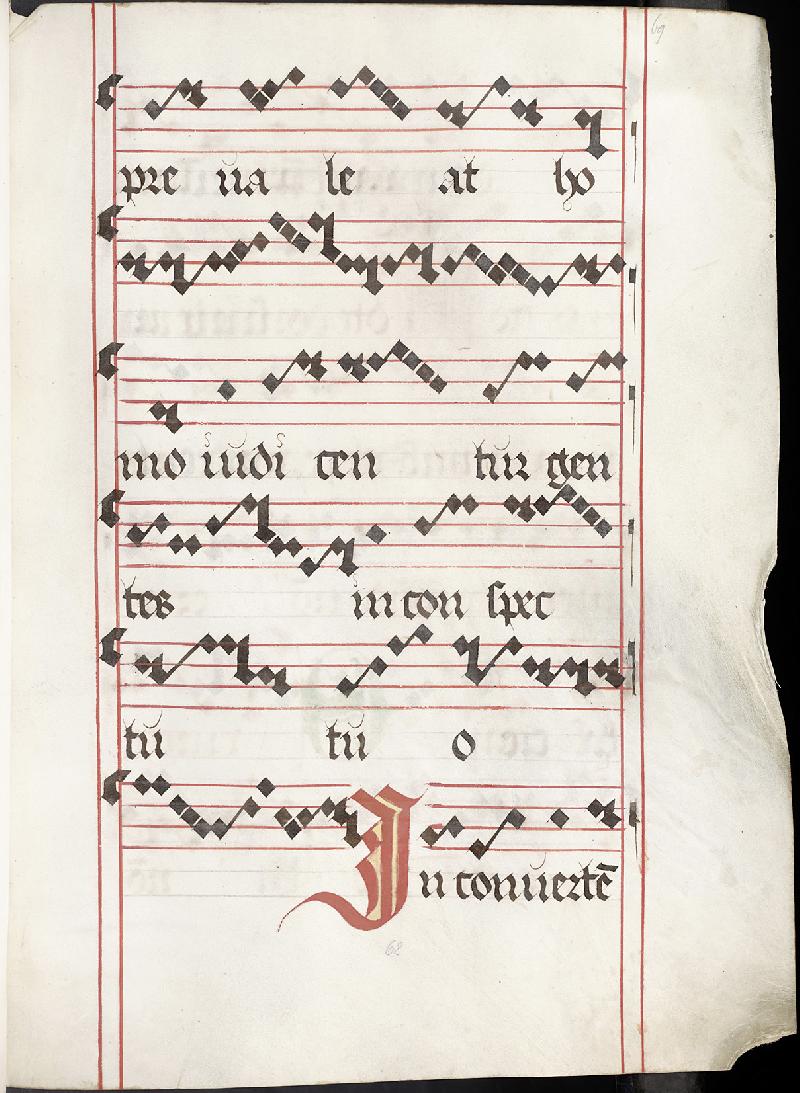 69
pre ua le at ho
mo iudi cen tur gen
tes in con spec
tu tu o
In conuertē
62